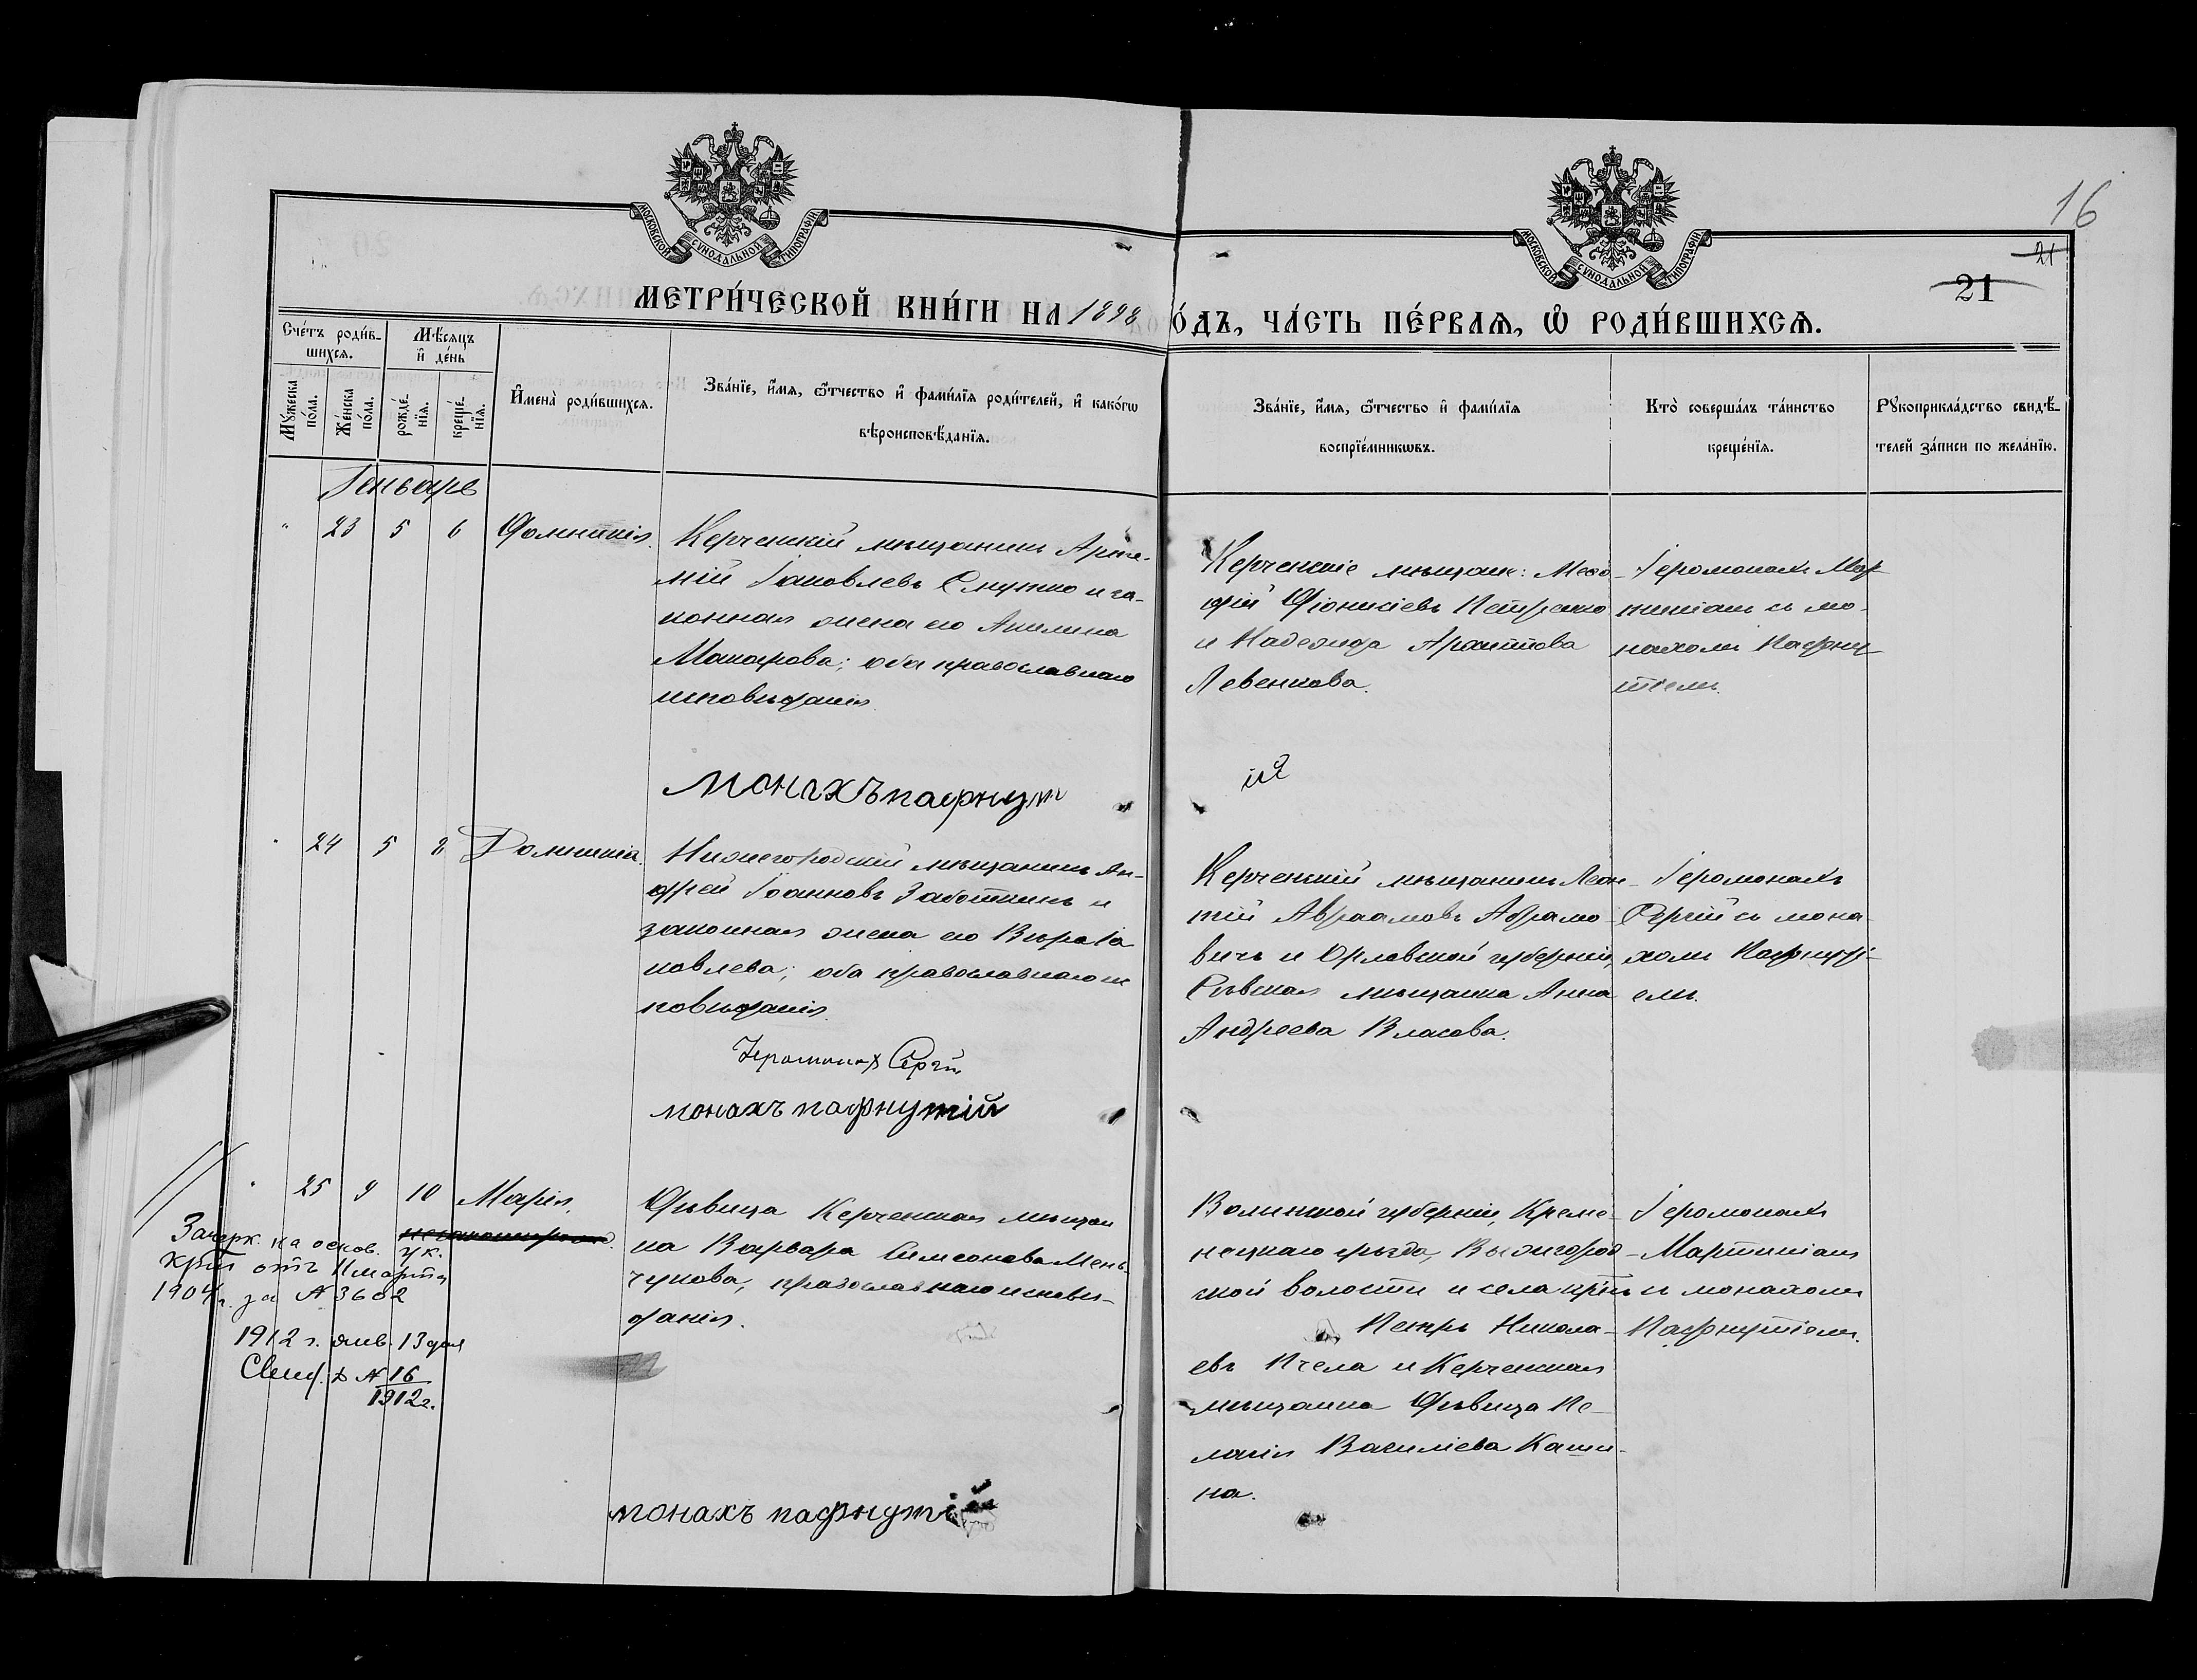 16
21
21
МОСКОВСКОЙ СУНОДАЛЬНОЙ ТИПОГРАФІИ
МОСКОВСКОЙ СУНОДАЛЬНОЙ ТИПОГРАФІИ
МЕТРИ́ЧЕСКОЙ КНИ́ГИ НА 1898
О́ДЪ, ЧА́СТЬ ПЕ́РВАѦ, Ѽ РОДИ́ВШИХСѦ.
Сче́тъ роди́в-
шихсѧ.
Мѣсѧцъ
и҆ де́нь
Мꙋ́жеска
по́ла.
Же́нска
по́ла.
рожде́-
нїѧ.
креще́-
нїѧ.
И҆мена̀ роди́вшихсѧ.
Зва́нїе, и҆́мѧ, ѻ҆́тчество и҆ фами́лїѧ роди́телей, и҆ како́гѡ
вѣроисповѣ́данїѧ.
Зва́нїе, и҆́мѧ, ѻ҆́тчество и҆ фами́лїѧ
воспрїе́мникѡвъ.
Кто̀ соверша́лъ та́инство
креще́нїѧ.
Рꙋкоприкла́дство свидѣ́-
телей за́писи по жела́нїю.
Январь
23 5 6 Домникія.
Керченскій мѣщанинъ Арте-
мій Іаковлевъ и за-
конная жена его Акилина
Макарова; оба православнаго
исповѣданія.
Керченскіе мѣщане: Меѳо-
дій Діонисіевъ Петренко
и Надежда Архиппова
Левенкова.
Іеромонахъ Мар-
тиніанъ съ мо-
нахомъ Пафну-
тіемъ.
монахъ пафнут
ій
24 5 8 Домникія.
Нижегородскій мѣщанинъ Ан-
дрей Іоанновъ Заботкинъ и
законная жена его Вѣра Іа
ковлева; оба православнаго ис
повѣданія.
Керченскій мѣщанинъ Леон-
тій Авраамовъ Абрамо-
вичъ и Орловской губерніи,
Сѣвская мѣщанка Анна
Андреева Власова.
Іеромонахъ
Сергій съ мона-
хомъ Пафнуті-
емъ.
Іеромонахъ Сергій
монахъ пафнутій
25 9 10 Марія.
незаконнорожд.
Дѣвица Керченская мѣщан
ка Варвара Симеонова Мень-
чукова, православнаго исповѣ-
данія.
Волынской губерніи, Креме-
нецкаго уѣзда, Вышгород-
ской волости и села крес-нъ
Петръ Никола-
евъ Пчела и Керченская
мѣщанка Дѣвица Пе-
лагія Василіева Каши-
на.
Іеромонахъ
Мартиніанъ
съ монахомъ
Пафнутіемъ.
Зачерк. на основ. ук.
отъ 11 марта
1904 г. за № 3602
1912 г. янв. 13 дня
№ 16
1912 г.
монахъ пафнутій